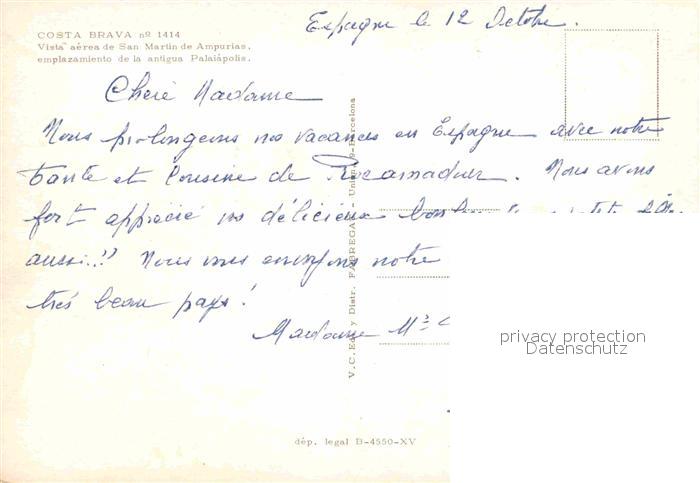 COSTA BRAVA nº 1414
Vista aérea de San Martin de Ampurias,
emplazamiento de la antigua Palaiápolis.
Espagne le 12 Octobre.
Chère Madame
Nous prolongeons nos vacances en Espagne avec notre
tante et cousine de Rocamadour. Nous avons
fort apprécié vos délicieux
aussi..!! Nous vous envoyons notre
très beau pays!
Madame
V. C. Ed. y Distr. FABREGAT - Unión, 9-Barcelona
privacy protection
Datenschutz
dép. legal B-4550-XV